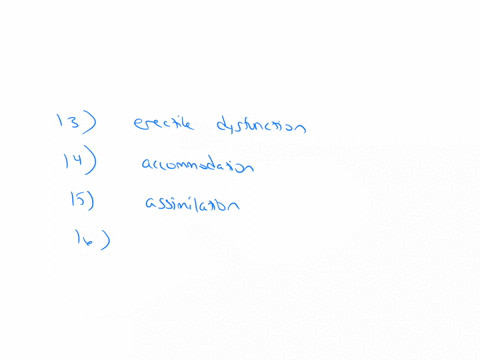 13) erectile dysfunction
14) accommodation
15) assimilation
16)